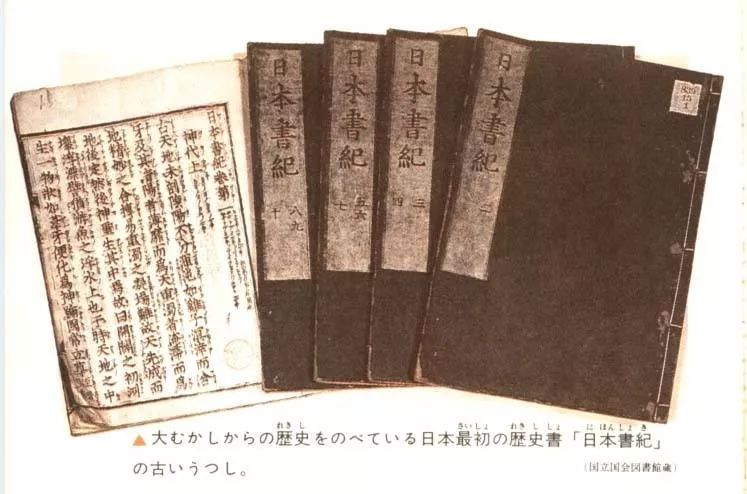 日本書紀卷第一
神代上
古天地未剖陰陽不分渾沌如雞子溟涬而含
牙及其清陽者薄靡而爲天重濁者淹滯而爲
地精妙之合搏易重濁之凝場難故天先成而
地後定然後神聖生其中焉故曰開闢之初洲
壤浮漂譬猶游魚之浮水上也于時天地之中
生一物狀如葦牙便化爲神號國常立尊
日本書紀
八九
十
日本書紀
五六
七
日本書紀
三
四
日本書紀
二
839
15
1
▲大むかしからの歴史をのべている日本最初の歴史書「日本書紀」
の古いうつし。
(国立国会図書館蔵)